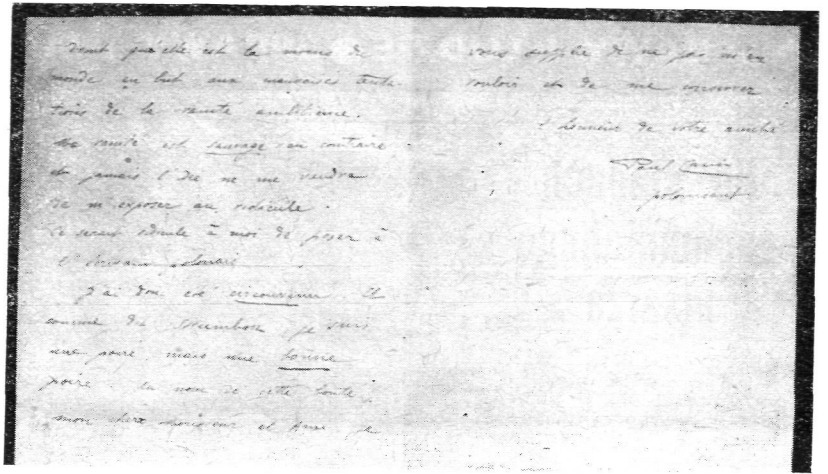 dont        est la moins du
monde en but aux mauvaises tenta-
tions de la vanité ambitieuse.
Ma vanité est sauvage au contraire
et jamais l'idée ne me viendra
de m'exposer au ridicule.
Ce serait ridicule à moi de poser à
l'écrivain polonais
J'ai donc été                Et
comme                    je suis
une poire, mais une bonne
poire. Au nom de cette bonté,
mon cher Monsieur et Ami je
vous supplie de ne pas m'en
vouloir et de me conserver
l'honneur de votre amitié
Paul Cazin
polonisant